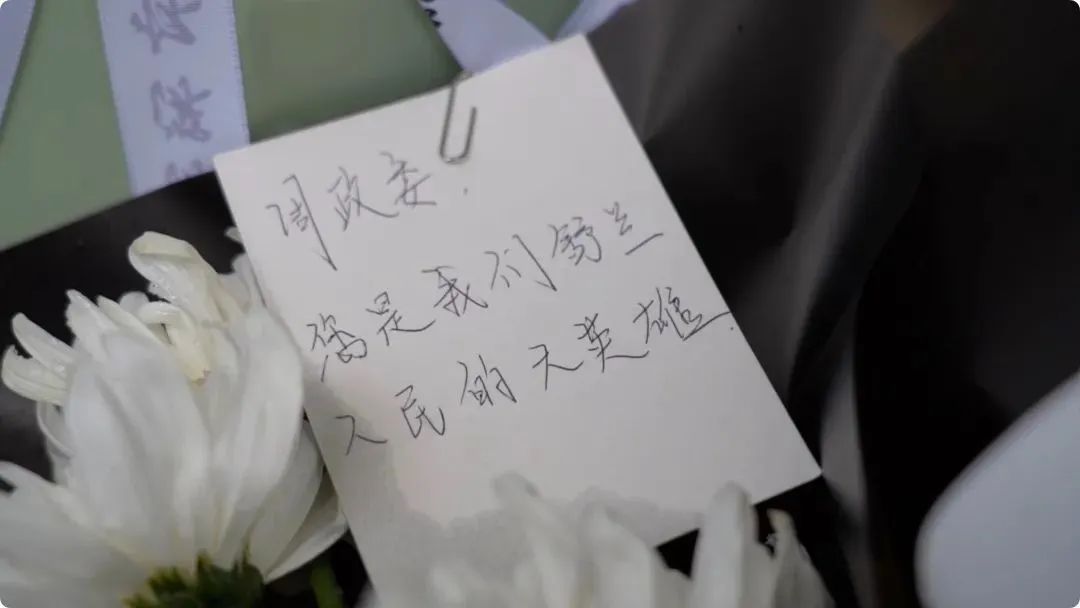 周政委.
您是我们舒兰
人民的大英雄.
深